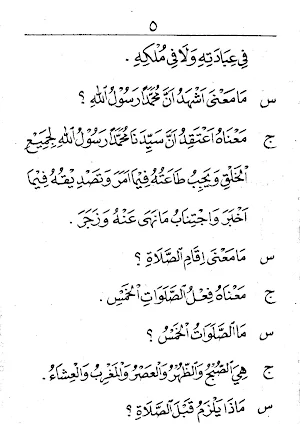 ٥
فِي عِبَادَتِهِ وَلَا فِي مُلْكِهِ .
س مَا مَعْنَى اَشْهَدُ اَنَّ مُحَمَّدًا رَسُوْلُ اللهِ ؟
ج مَعْنَاهُ اَعْتَقِدُ اَنَّ سَيِّدَنَا مُحَمَّدًا رَسُوْلُ اللهِ لِجَمِيْعِ
الْخَلْقِ وَيَجِبُ طَاعَتُهُ فِيْمَا اَمَرَ وَتَصْدِيْقُهُ فِيْمَا
اَخْبَرَ وَاجْتِنَابُ مَا نَهَى عَنْهُ وَزَجَرَ .
س مَا مَعْنَى اِقَامِ الصَّلَاةِ ؟
ج مَعْنَاهُ فِعْلُ الصَّلَوَاتِ الْخَمْسِ .
س مَا الصَّلَوَاتُ الْخَمْسُ ؟
ج هِيَ الصُّبْحُ وَالظُّهْرُ وَالْعَصْرُ وَالْمَغْرِبُ وَالْعِشَاءُ .
س مَاذَا يَلْزَمُ قَبْلَ الصَّلَاةِ ؟